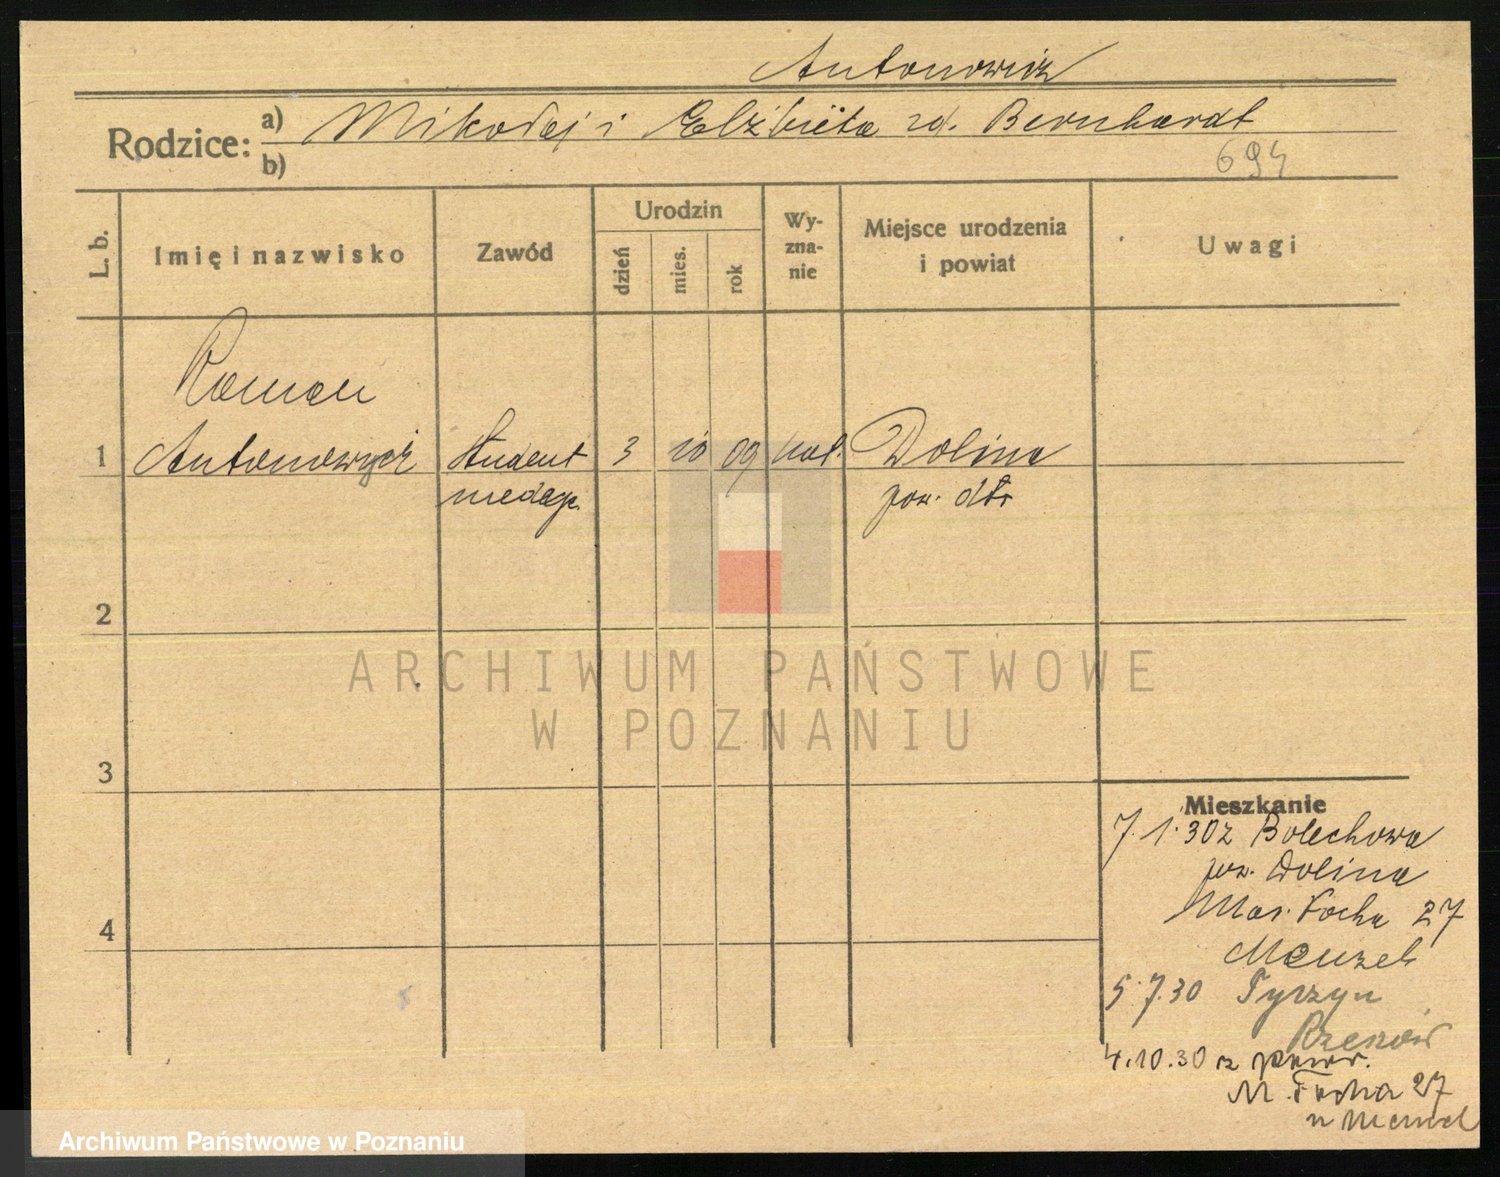 Antonowicz
Rodzice: a) Mikołaj i Elżbieta zd. Bernhardt
b)
694
L. b.
Imię i nazwisko
Zawód
Urodzin
dzień
mies.
rok
Wy-
zna-
nie
Miejsce urodzenia
i powiat
Uwagi
Roman
1 Antonowycz student 3 10 09 kat. Dolina
medyc. pow. dto
2
3
4
Mieszkanie
7.1.30 z Bolechowa
pow. Dolina
Mar. Focha 27
Menzel
5.7.30 Tyrzyn
4.10.30 z powr.
M. Focha 27
u Menzel
ARCHIWUM PAŃSTWOWE
W POZNANIU
Archiwum Państwowe w Poznaniu